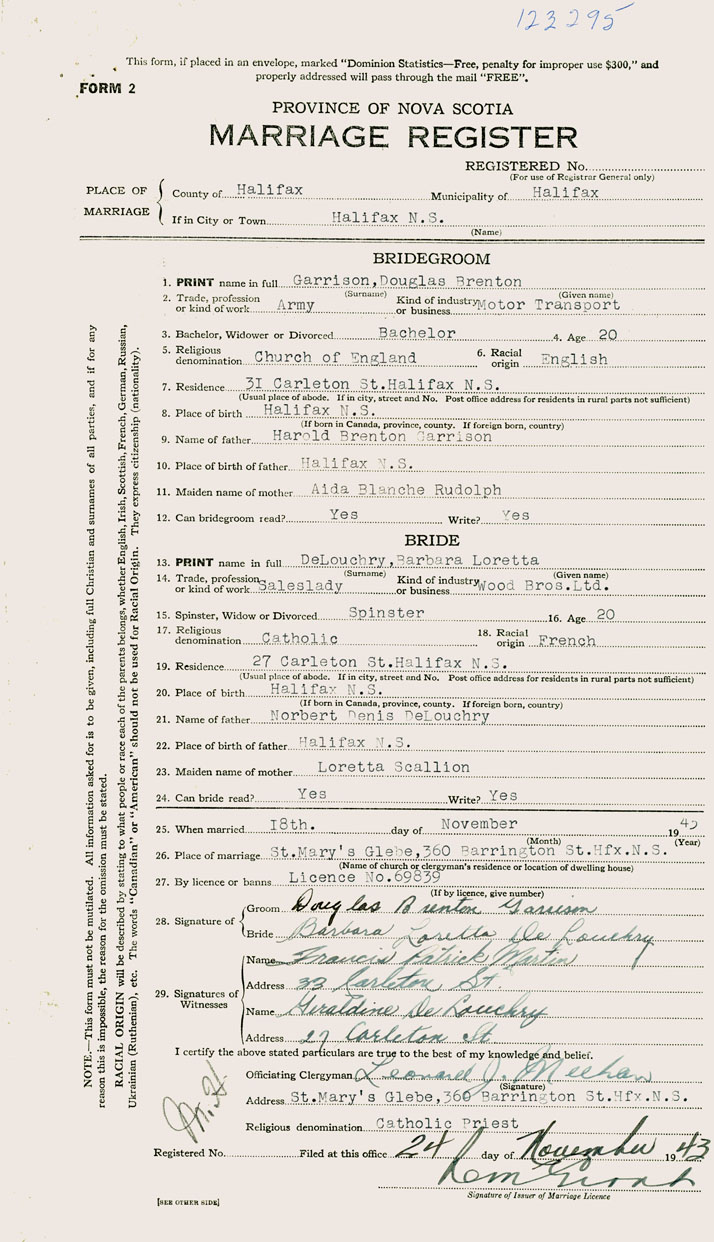 123295
This form, if placed in an envelope, marked "Dominion Statistics—Free, penalty for improper use $300," and
properly addressed will pass through the mail "FREE".
FORM 2
PROVINCE OF NOVA SCOTIA
MARRIAGE REGISTER
REGISTERED No.
(For use of Registrar General only)
PLACE OF MARRIAGE
County of Halifax Municipality of Halifax
If in City or Town Halifax N.S.
(Name)
BRIDEGROOM
1. PRINT name in full Garrison,Douglas Brenton
(Surname) (Given name)
2. Trade, profession or kind of work Army Kind of industry or business Motor Transport
3. Bachelor, Widower or Divorced Bachelor 4. Age 20
5. Religious denomination Church of England 6. Racial origin English
7. Residence 3I Carleton St.Halifax N.S.
(Usual place of abode. If in city, street and No. Post office address for residents in rural parts not sufficient)
8. Place of birth Halifax N.S.
(If born in Canada, province, county. If foreign born, country)
9. Name of father Harold Brenton Garrison
10. Place of birth of father Halifax N.S.
11. Maiden name of mother Aida Blanche Rudolph
12. Can bridegroom read? Yes Write? Yes
BRIDE
13. PRINT name in full DeLouchry,Barbara Loretta
(Surname) (Given name)
14. Trade, profession or kind of work Saleslady Kind of industry or business Wood Bros.Ltd.
15. Spinster, Widow or Divorced Spinster 16. Age 20
17. Religious denomination Catholic 18. Racial origin French
19. Residence 27 Carleton St.Halifax N.S.
(Usual place of abode. If in city, street and No. Post office address for residents in rural parts not sufficient)
20. Place of birth Halifax N.S.
(If born in Canada, province, county. If foreign born, country)
21. Name of father Norbert Denis DeLouchry
22. Place of birth of father Halifax N.S.
23. Maiden name of mother Loretta Scallion
24. Can bride read? Yes Write? Yes
25. When married I8th. day of November 19
(Month) (Year)
26. Place of marriage St.Mary's Glebe,360 Barrington St.Hfx.N.S.
(Name of church or clergyman's residence or location of dwelling house)
27. By licence or banns Licence No.69839
(If by licence, give number)
28. Signature of
Groom Douglas Brenton Garrison
Bride Barbara Loretta De Louchry
29. Signatures of Witnesses
Name Francis Patrick Martin
Address 33 Carleton St.
Name Geraldine De Louchry
Address 27 Carleton St
I certify the above stated particulars are true to the best of my knowledge and belief.
Officiating Clergyman Leonard J. Meehan
(Signature)
Address St.Mary's Glebe,360 Barrington St.Hfx.N.S.
Religious denomination Catholic Priest
Registered No. Filed at this office 24 day of November 1943
Signature of Issuer of Marriage Licence
[SEE OTHER SIDE]
NOTE.—This form must not be mutilated. All information asked for is to be given, including full Christian and surnames of all parties, and if for any
reason this is impossible, the reason for the omission must be stated.
RACIAL ORIGIN will be described by stating to what people or race each of the parents belongs, whether English, Irish, Scottish, French, German, Russian,
Ukrainian (Ruthenian), etc. The words "Canadian" or "American" should not be used for Racial Origin. They express citizenship (nationality).